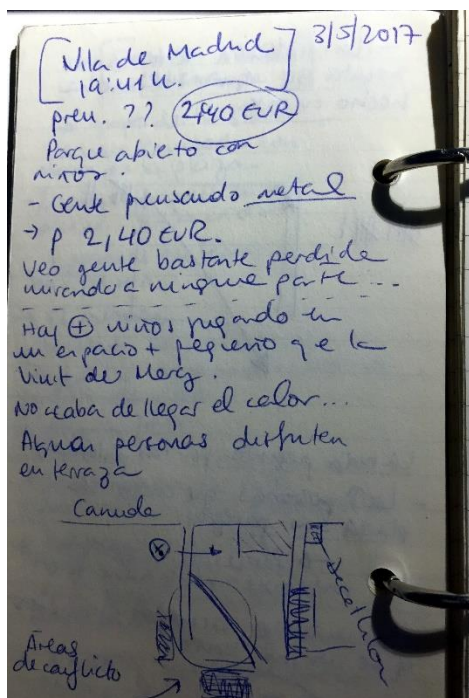 Vila de Madrid 3/5/2017
19:41h.
preu. ?? 2,40 EUR
Parque abierto con
niños.
- Gente pensando metal
→ P 2,40 EUR.
Veo gente bastante perdida
mirando a ninguna parte...
Hay + niños jugando en
un espacio + pequeño que la
de Merçè.
No acaba de llegar el calor...
Algunas personas disfruten
en terraza
Canuda
X
Decathlon
Áreas
de conflicto